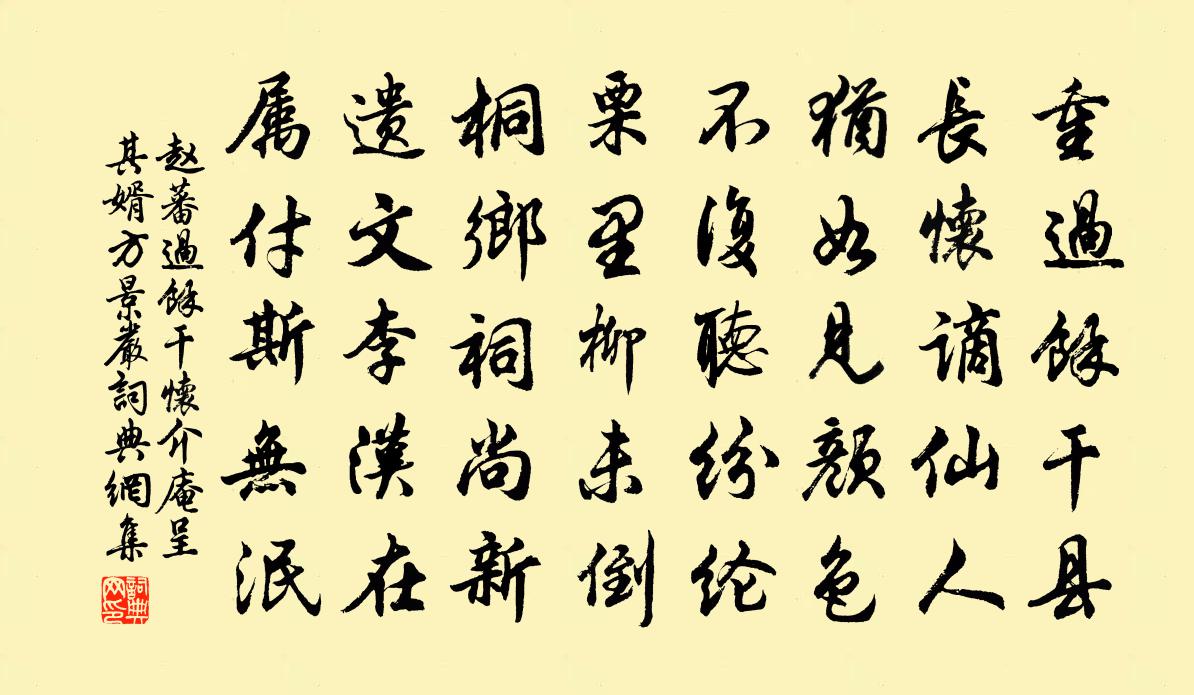 重過餘干县
長懷谪仙人
猶如見颜色
不復聽纷纶
栗里柳未倒
桐鄉祠尚新
遗文李漢在
属付斯無泯
赵蕃過餘干懷介庵呈
其婿方景嚴詞典網集
詞典网印